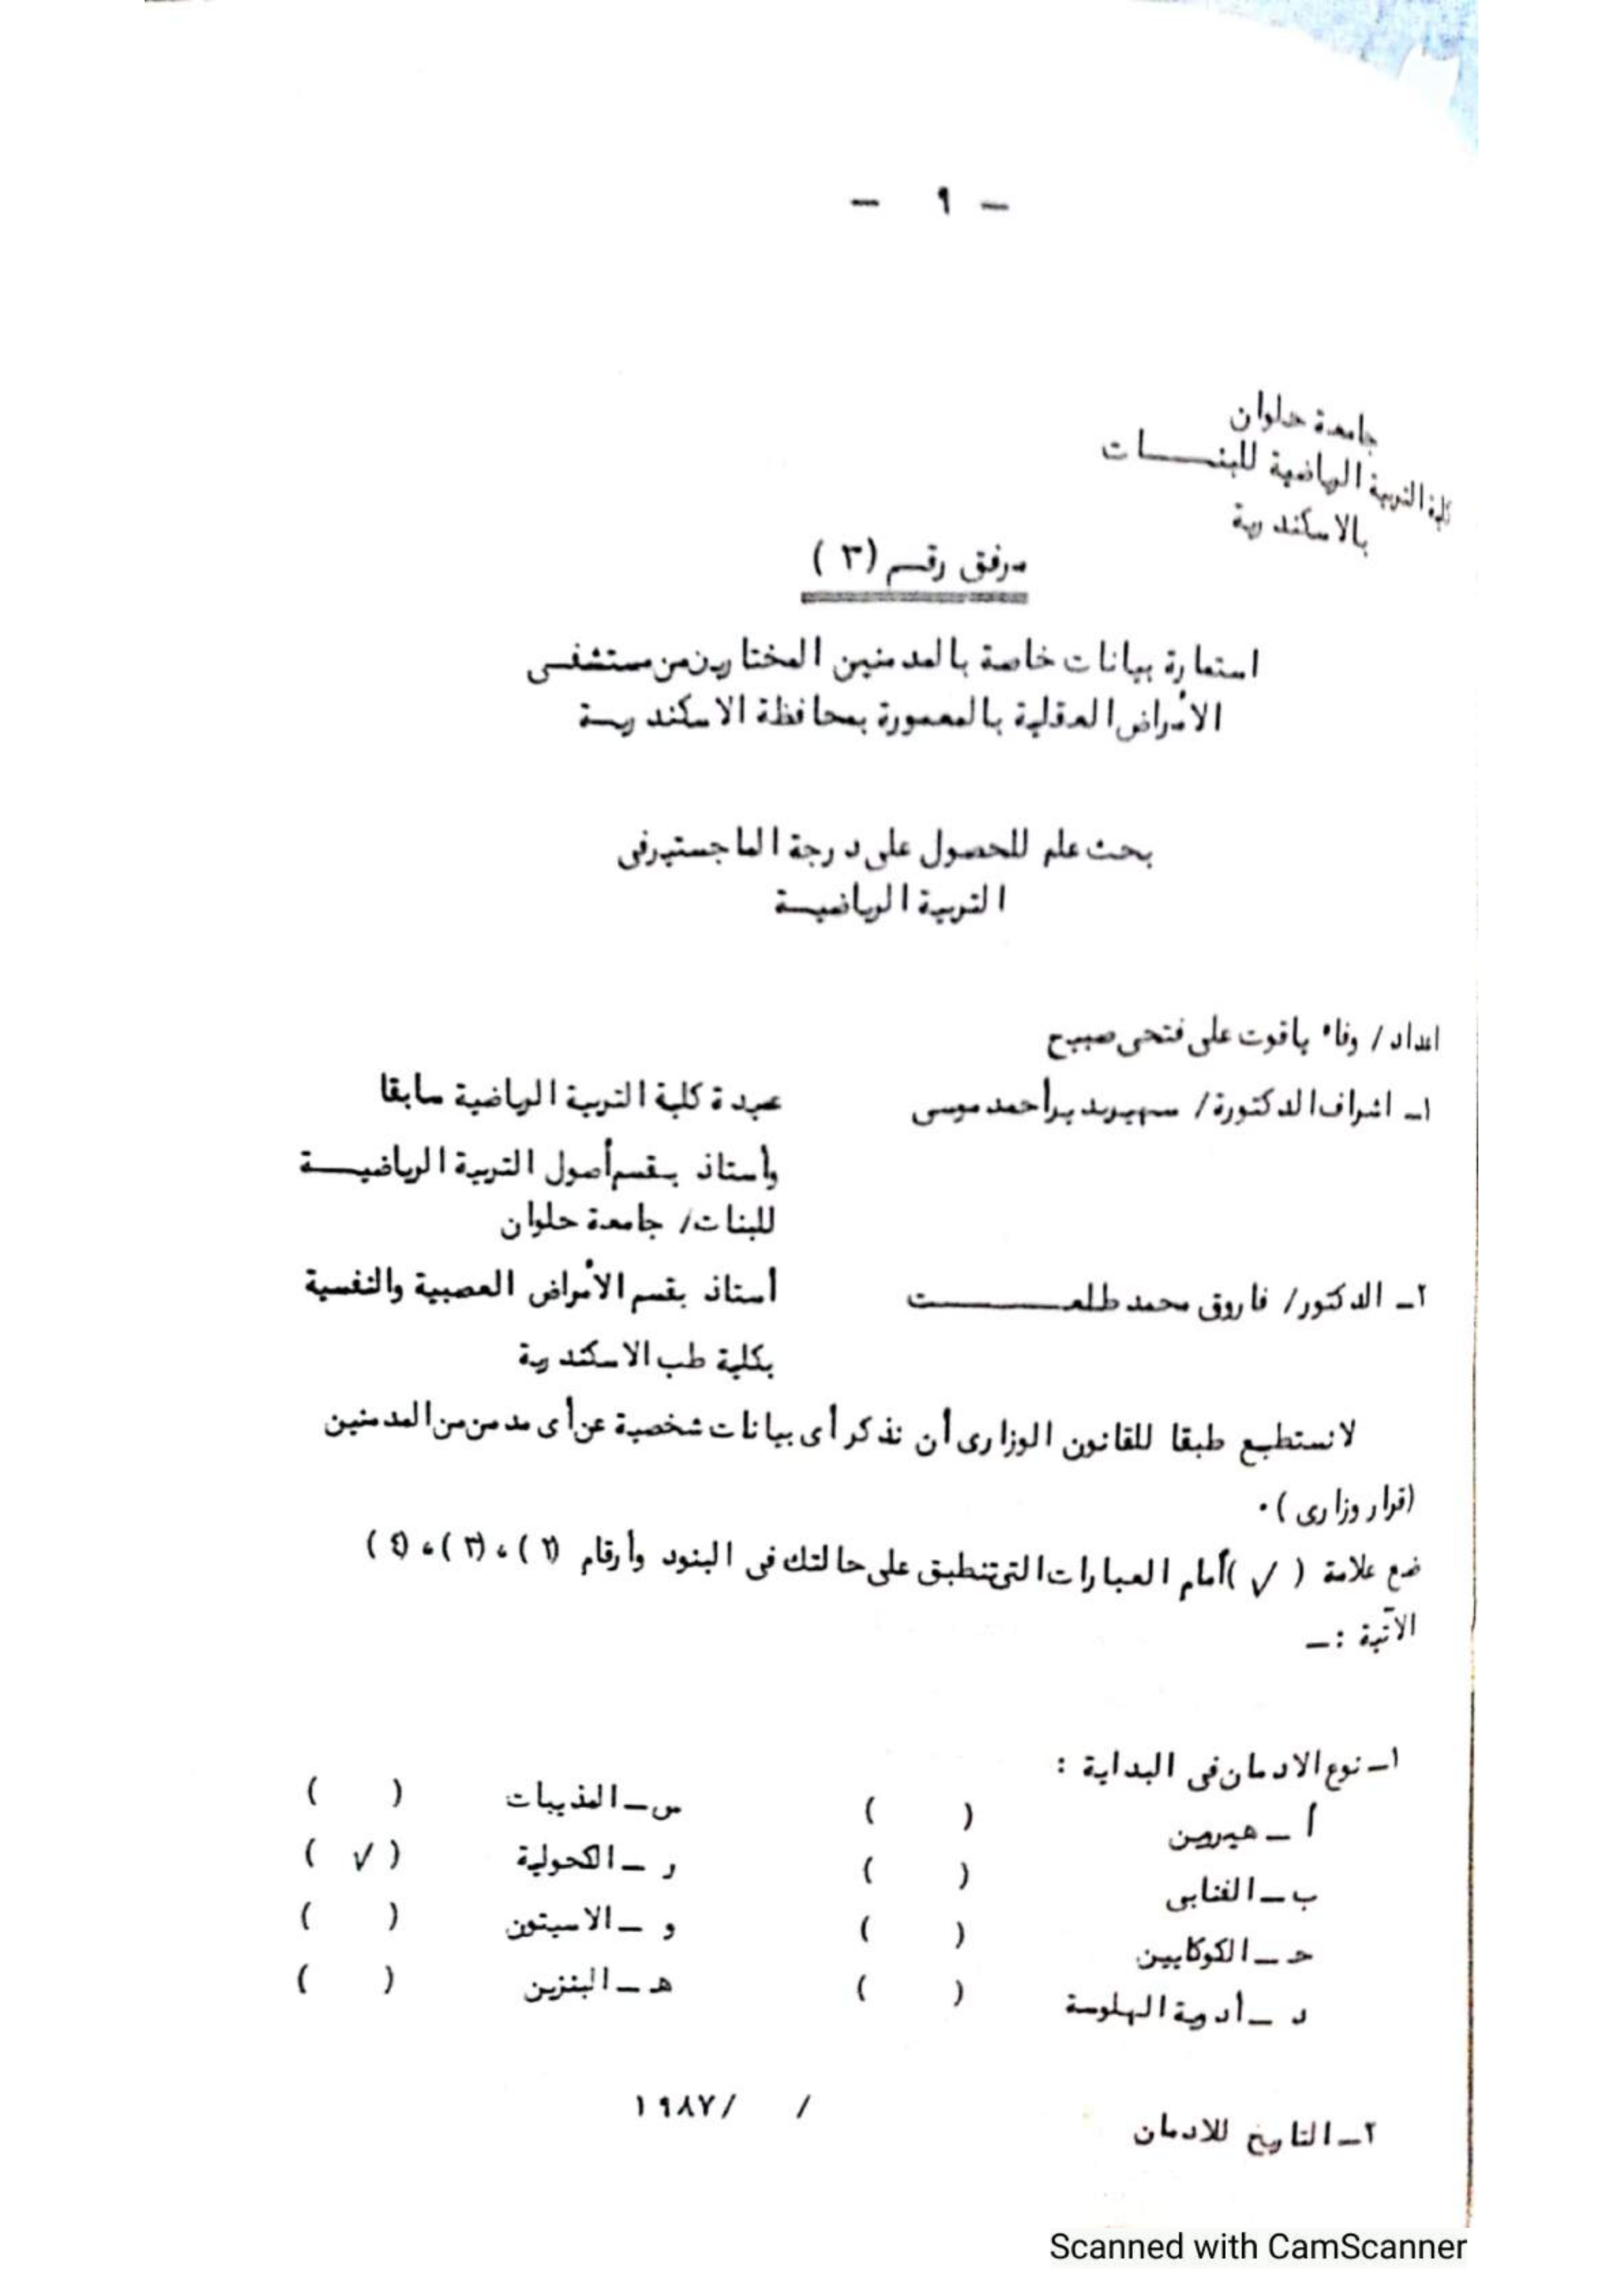 - ٩ -
جامعة حلوان
كلية التربية الرياضية للبنـــات
بالاسكندرية
مرفق رقم (٣)
استمارة بيانات خاصة بالمدمنين المختارين من مستشفى
الأمراض العقلية بالمعمورة بمحافظة الاسكندرية
بحث علم للحصول على درجة الماجستير فى
التربية الرياضية
اعداد / وفاء ياقوت على فتحى صبيح
١- اشراف الدكتورة / سهير بدير أحمد موسى عميدة كلية التربية الرياضية سابقا
وأستاذ بقسم أصول التربية الرياضية
للبنات / جامعة حلوان
٢- الدكتور / فاروق محمد طلعــــت أستاذ بقسم الأمراض العصبية والنفسية
بكلية طب الاسكندرية
لا نستطيع طبقا للقانون الوزارى أن نذكر أى بيانات شخصية عن أى مدمن من المدمنين
(قرار وزارى ) .
ضع علامة ( √ ) أمام العبارات التى تنطبق على حالتك فى البنود وأرقام (٢) ، (٣) ، (٤)
الآتية :-
١- نوع الادمان فى البداية :
أ - هيروين ( ) س - المذيبات ( )
ب - القنابى ( ) ر - الكحولية ( √ )
حـ - الكوكايين ( ) و - الاسيتون ( )
د - أدوية الهلوسة ( ) هـ - البنزين ( )
٢- التاريخ للادمان / / ١٩٨٧
Scanned with CamScanner